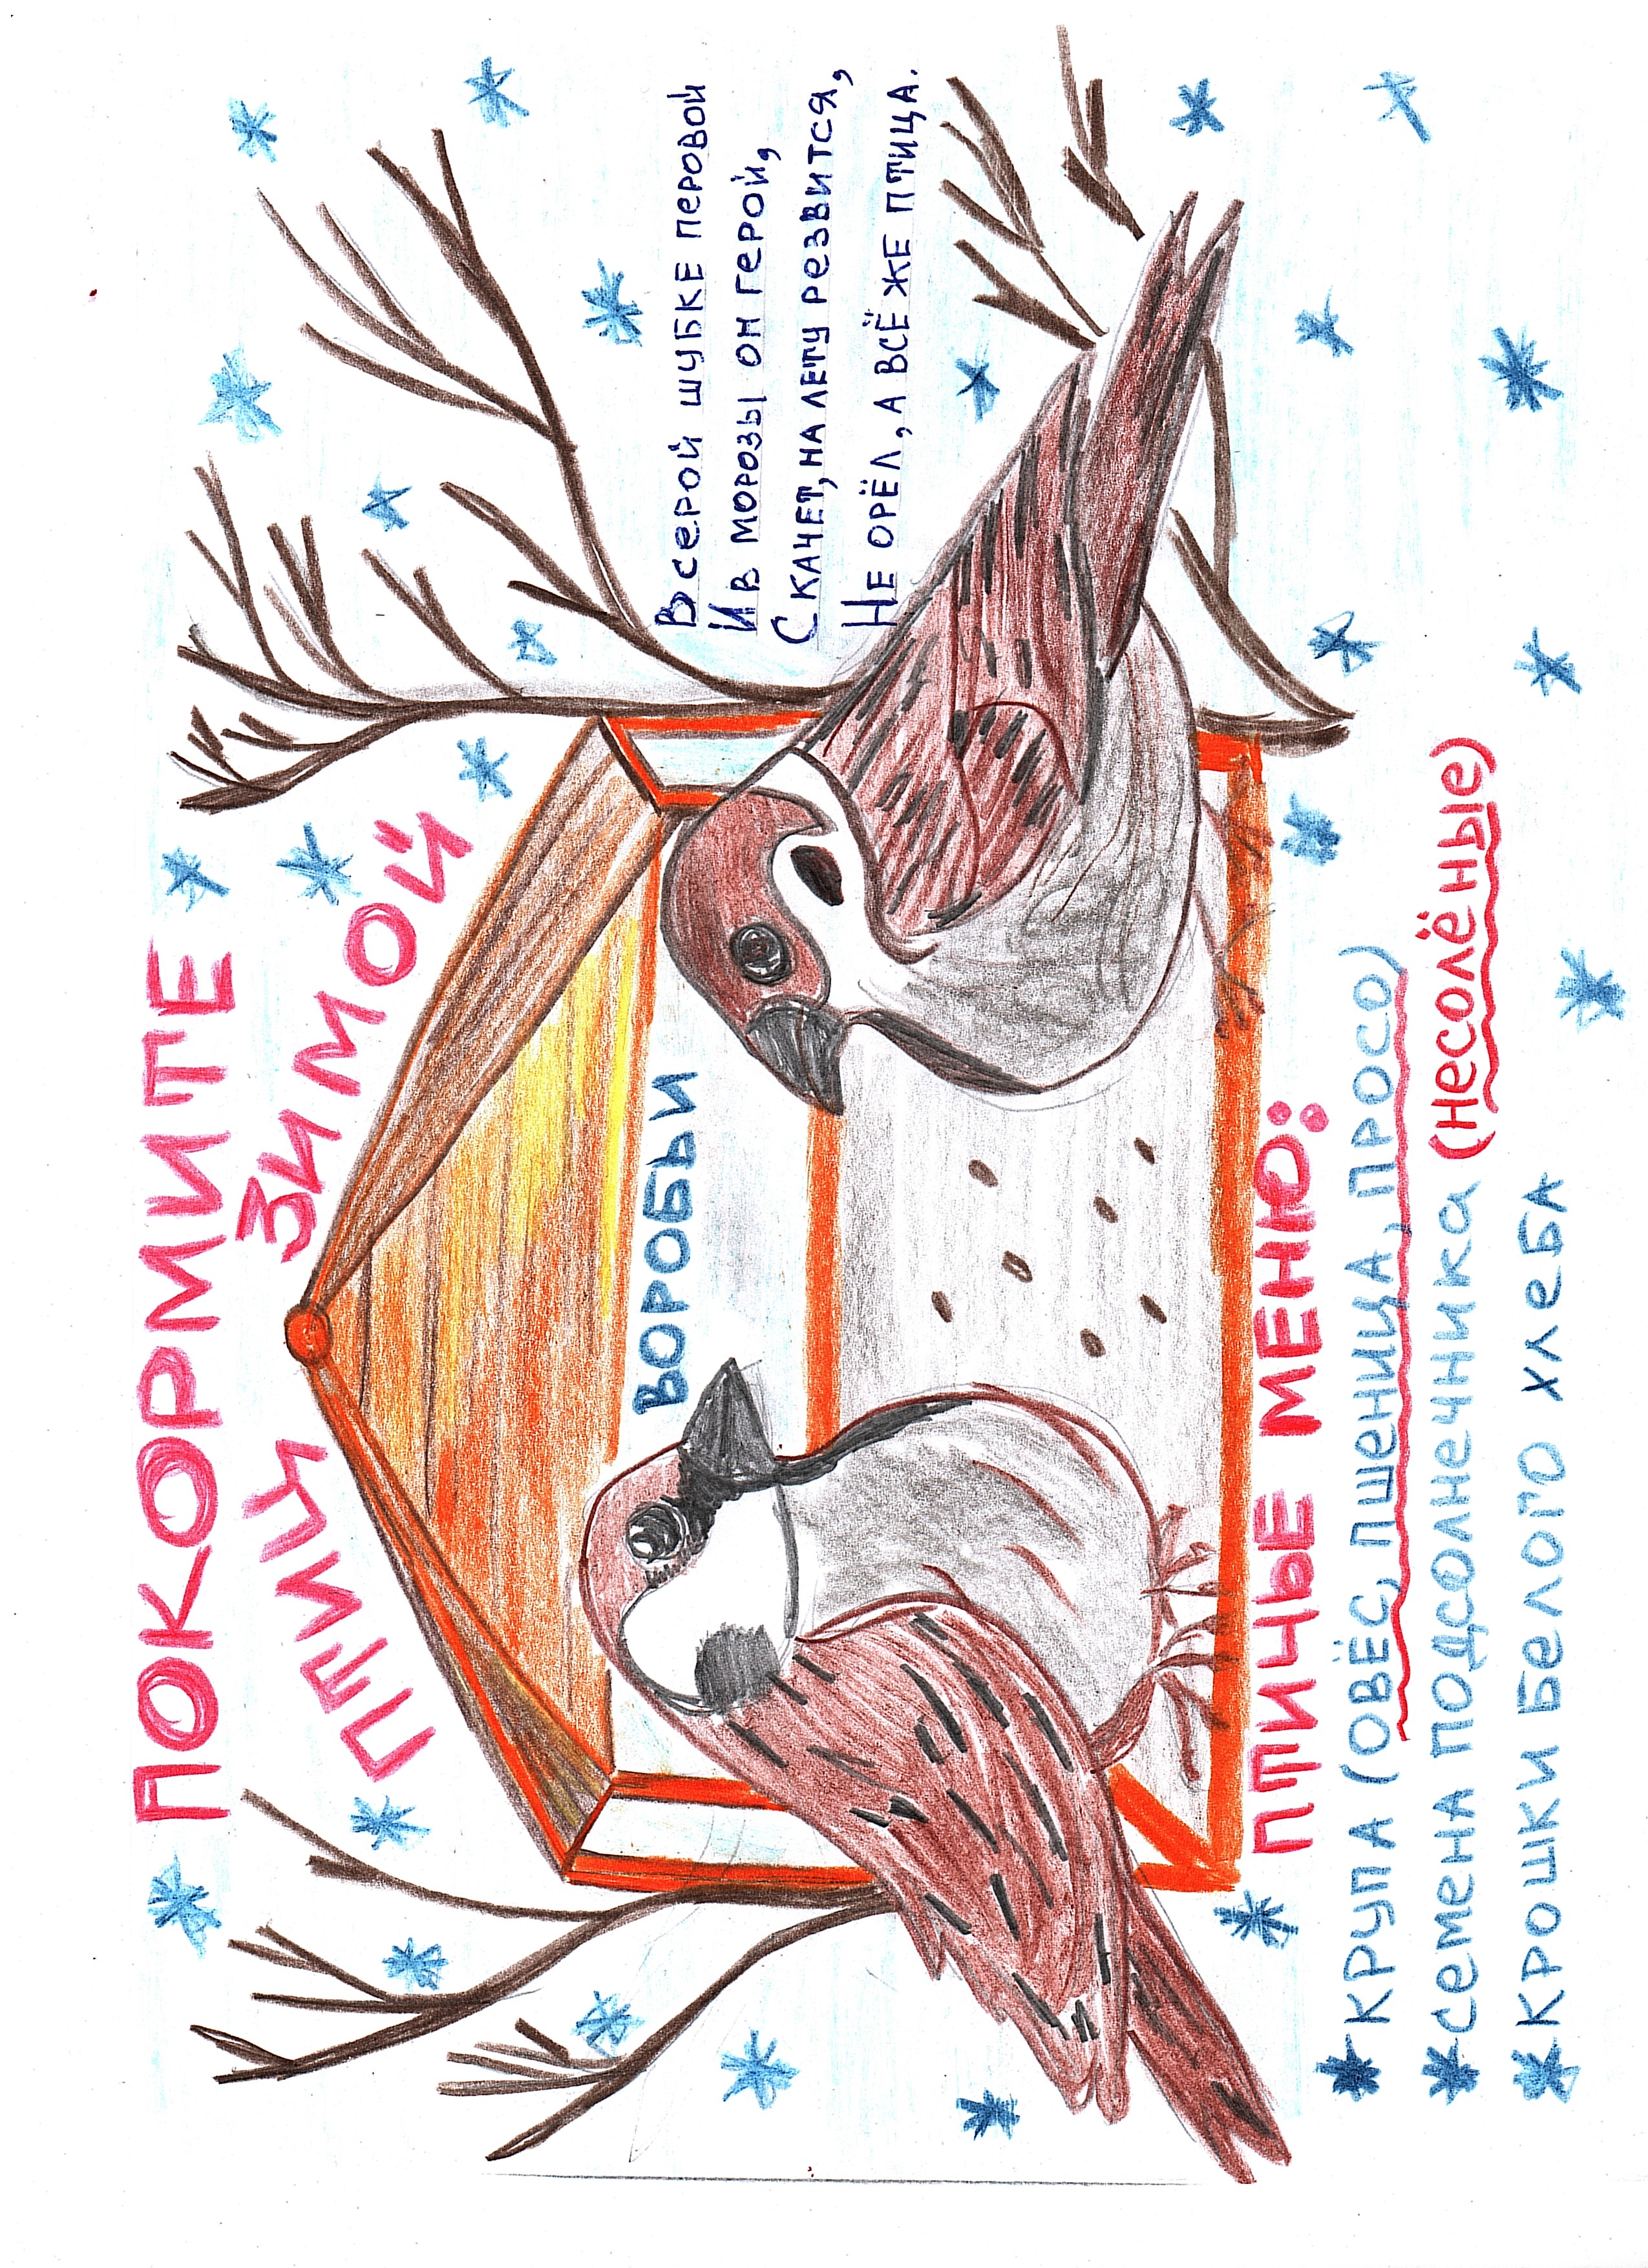 ПОКОРМИТЕ
ПТИЦ ЗИМОЙ
В серой шубке перовой
И в морозы он герой,
Скачет, на лету резвится,
Не орёл, а всё же птица.
ВОРОБЬИ
ПТИЧЬЕ МЕНЮ:
*КРУПА (ОВЁС, ПШЕНИЦА, ПРОСО)
*семена подсолнечника (несолёные)
*КРОШКИ БЕЛОГО ХЛЕБА